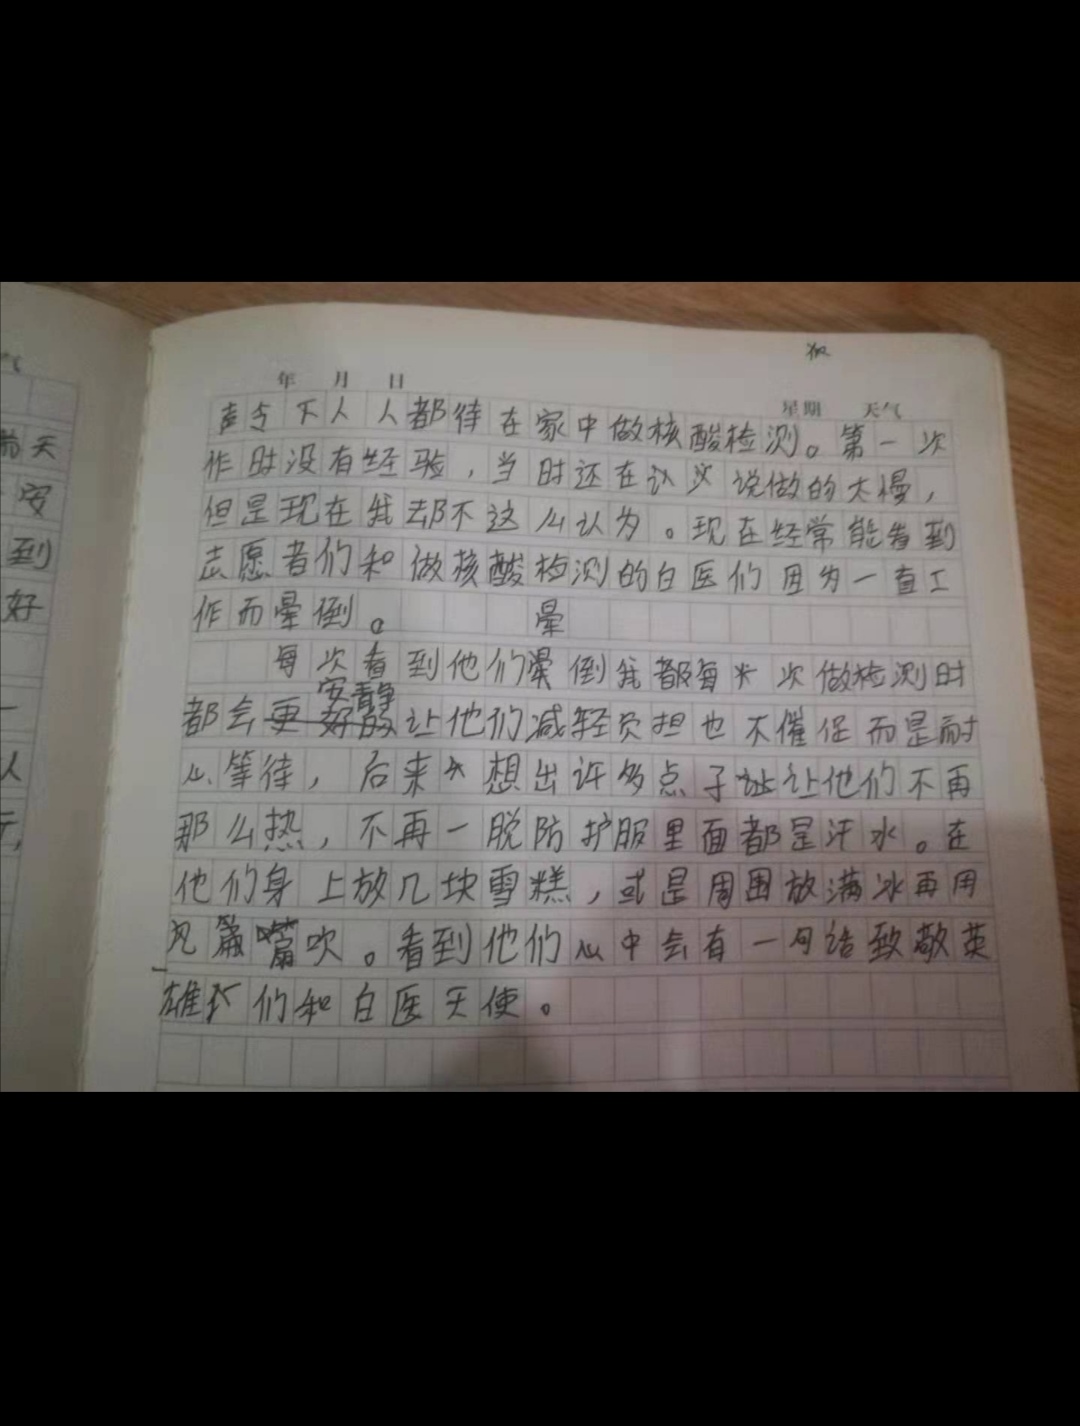 年 月 日
星期 天气
声令下人人都待在家中做核酸检测。第一次
作时没有经验，当时还在议论说做的太慢，
但是现在我却不这么认为。现在经常能看到
志愿者们和做核酸检测的白医们因为一直工
作而晕倒。 晕
每次看到他们晕倒我都每次做检测时
安静
都会更好的让他们减轻负担也不催促而是耐
心等待，后来想出许多点子让他们不再
那么热，不再一脱防护服里面都是汗水。在
他们身上放几块雪糕，或是周围放满冰再用
风扇吹。看到他们心中会有一句话致敬英
雄们和白医天使。
满天
安
到
好
人